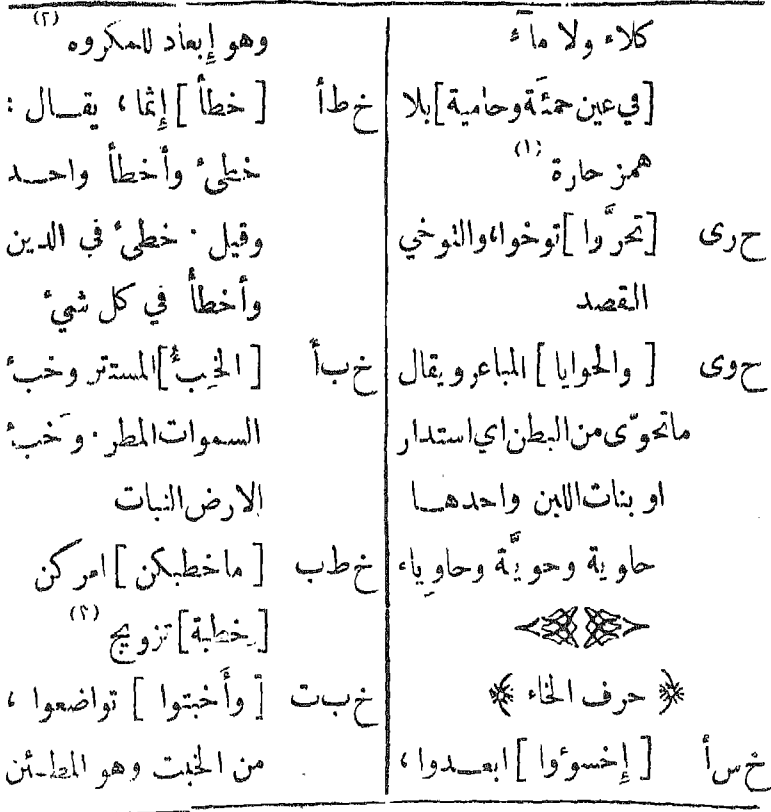 كلاء ولا ماءً
[في عين حمئَة وحامية] بلا
همز حارة (١)
ح ر ى [تحرَّوا] توخوا، والتوخي
القصد
ح و ى [والحوايا] المباعر ويقال
ماتحوّى من البطن اي استدار
او بنات اللبن واحدهــا
حاوية وحويَّة وحاوِياء
﴿ حرف الخاء ﴾
خ س أ [إخسوءوا] ابعــدوا،
وهو إبعاد للمكروه (٢)
خ ط أ [خطأ] إثما، يقــال :
خطئ وأخطأ واحــد
وقيل · خطئ في الدين
وأخطأ في كل شيء
خ ب أ [الخبءُ] المستتر وخبء
السموات المطر · وخبء
الارض النبات
خ ط ب [ماخطبكن] امركن
[خِطبة] تزويج (٢)
خ ب ت [وأَخبتوا] تواضعوا ،
من الخبت وهو المطـئن